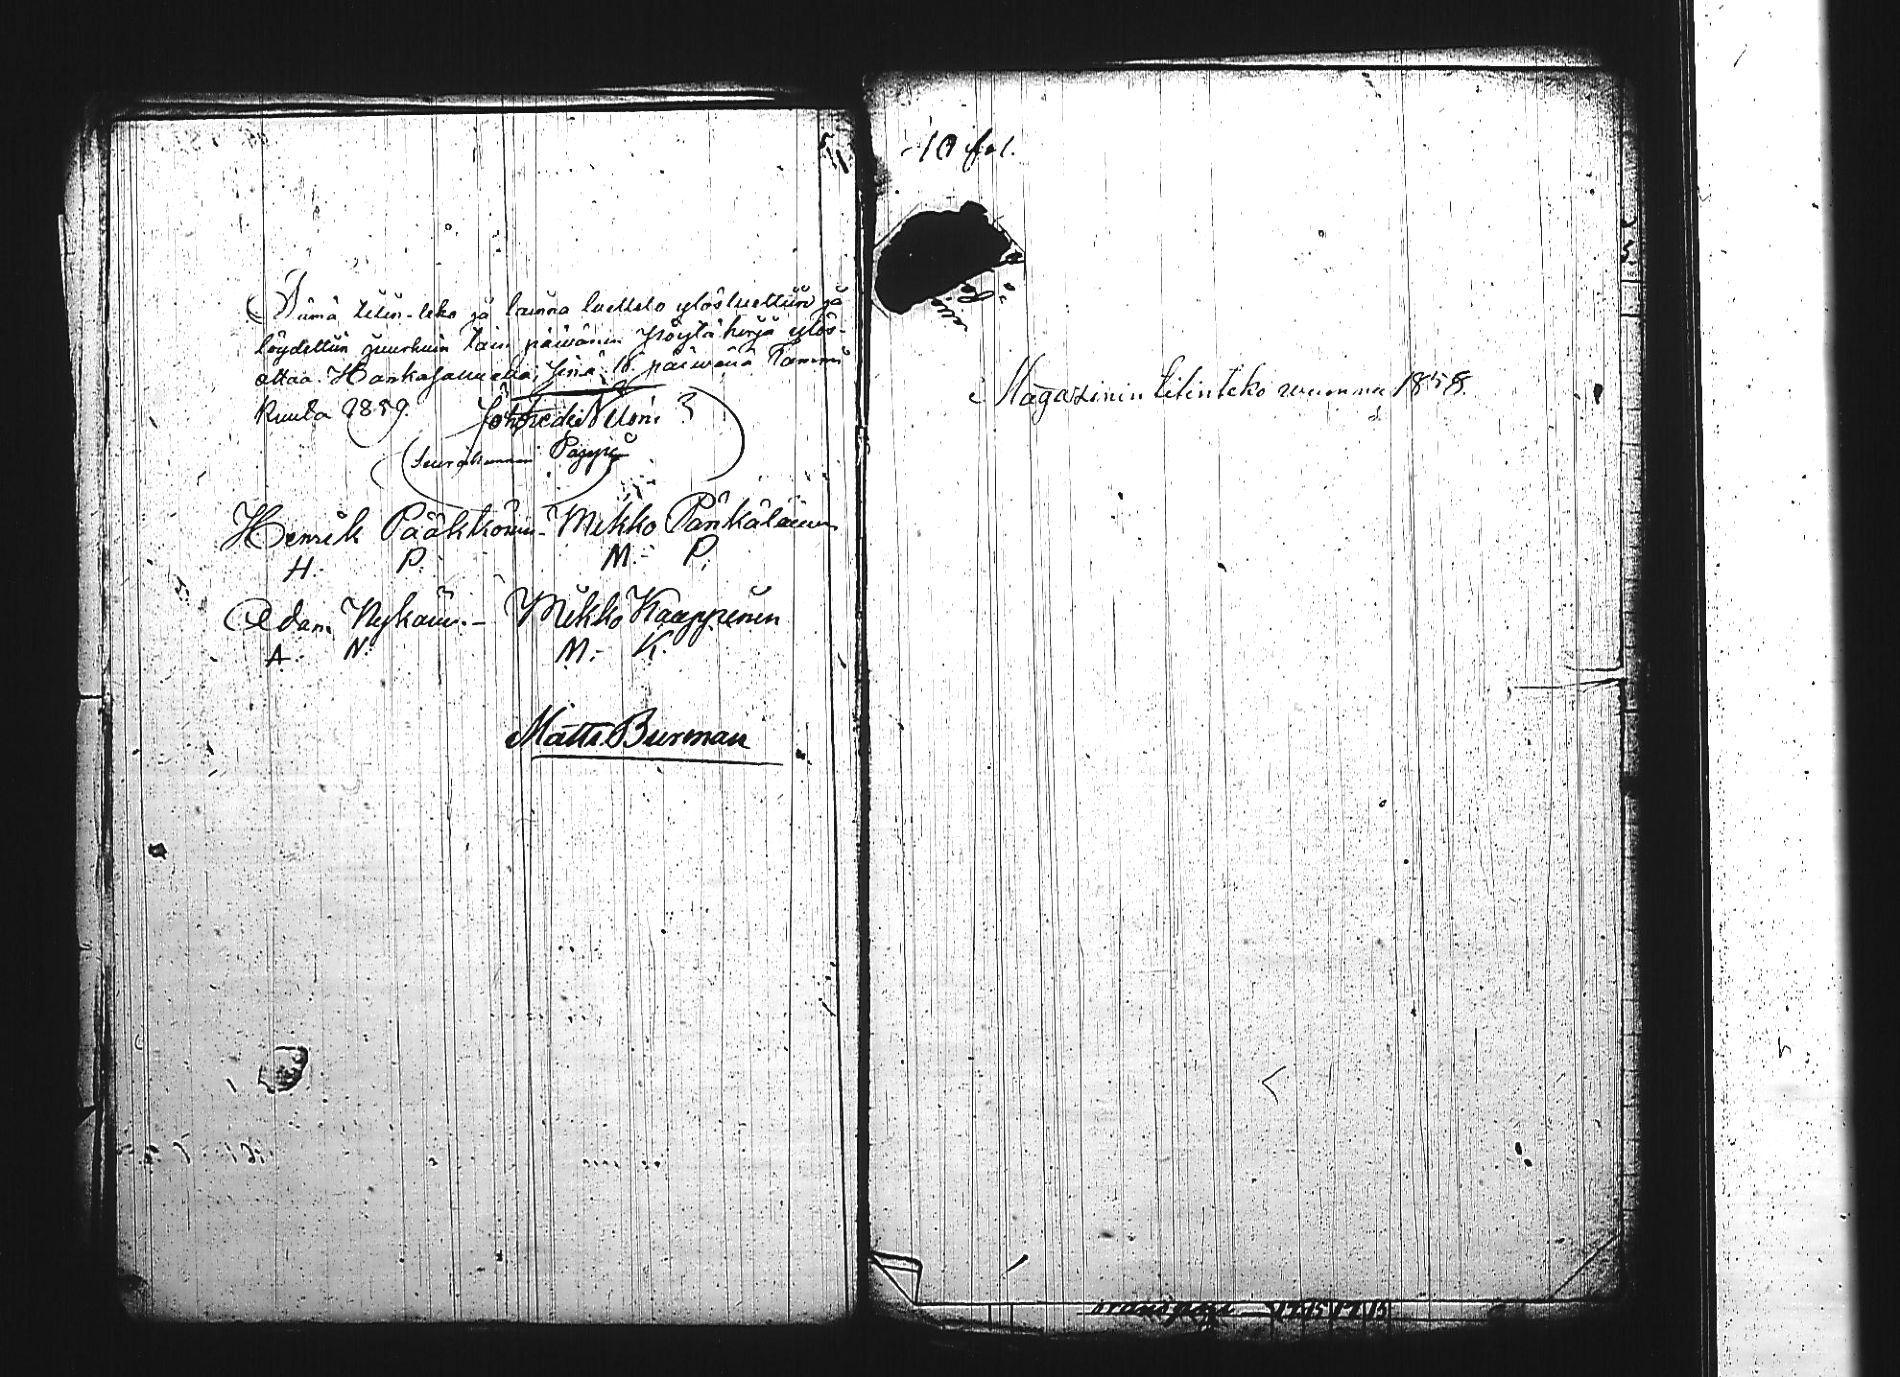 Tämä tilin-teko ja lainna luettelo ylösluettiin ja
löydettiin juurkuin tain päiwänen Pöytäkirja ylös-
ottaa. Hankasalmella, sinä 18 päiwänä Tammi
Kuuta 1859.
Seurakunnan Pappi
Henrik Pääkkönen - Mikko Pänkäläinen
H. P. M. P.
Adam Nykäin. - Mikko Kaappinen
A. N. M. K.
Matts Burman
10 fol.
Magasinin tilinteko wuonna 1858.